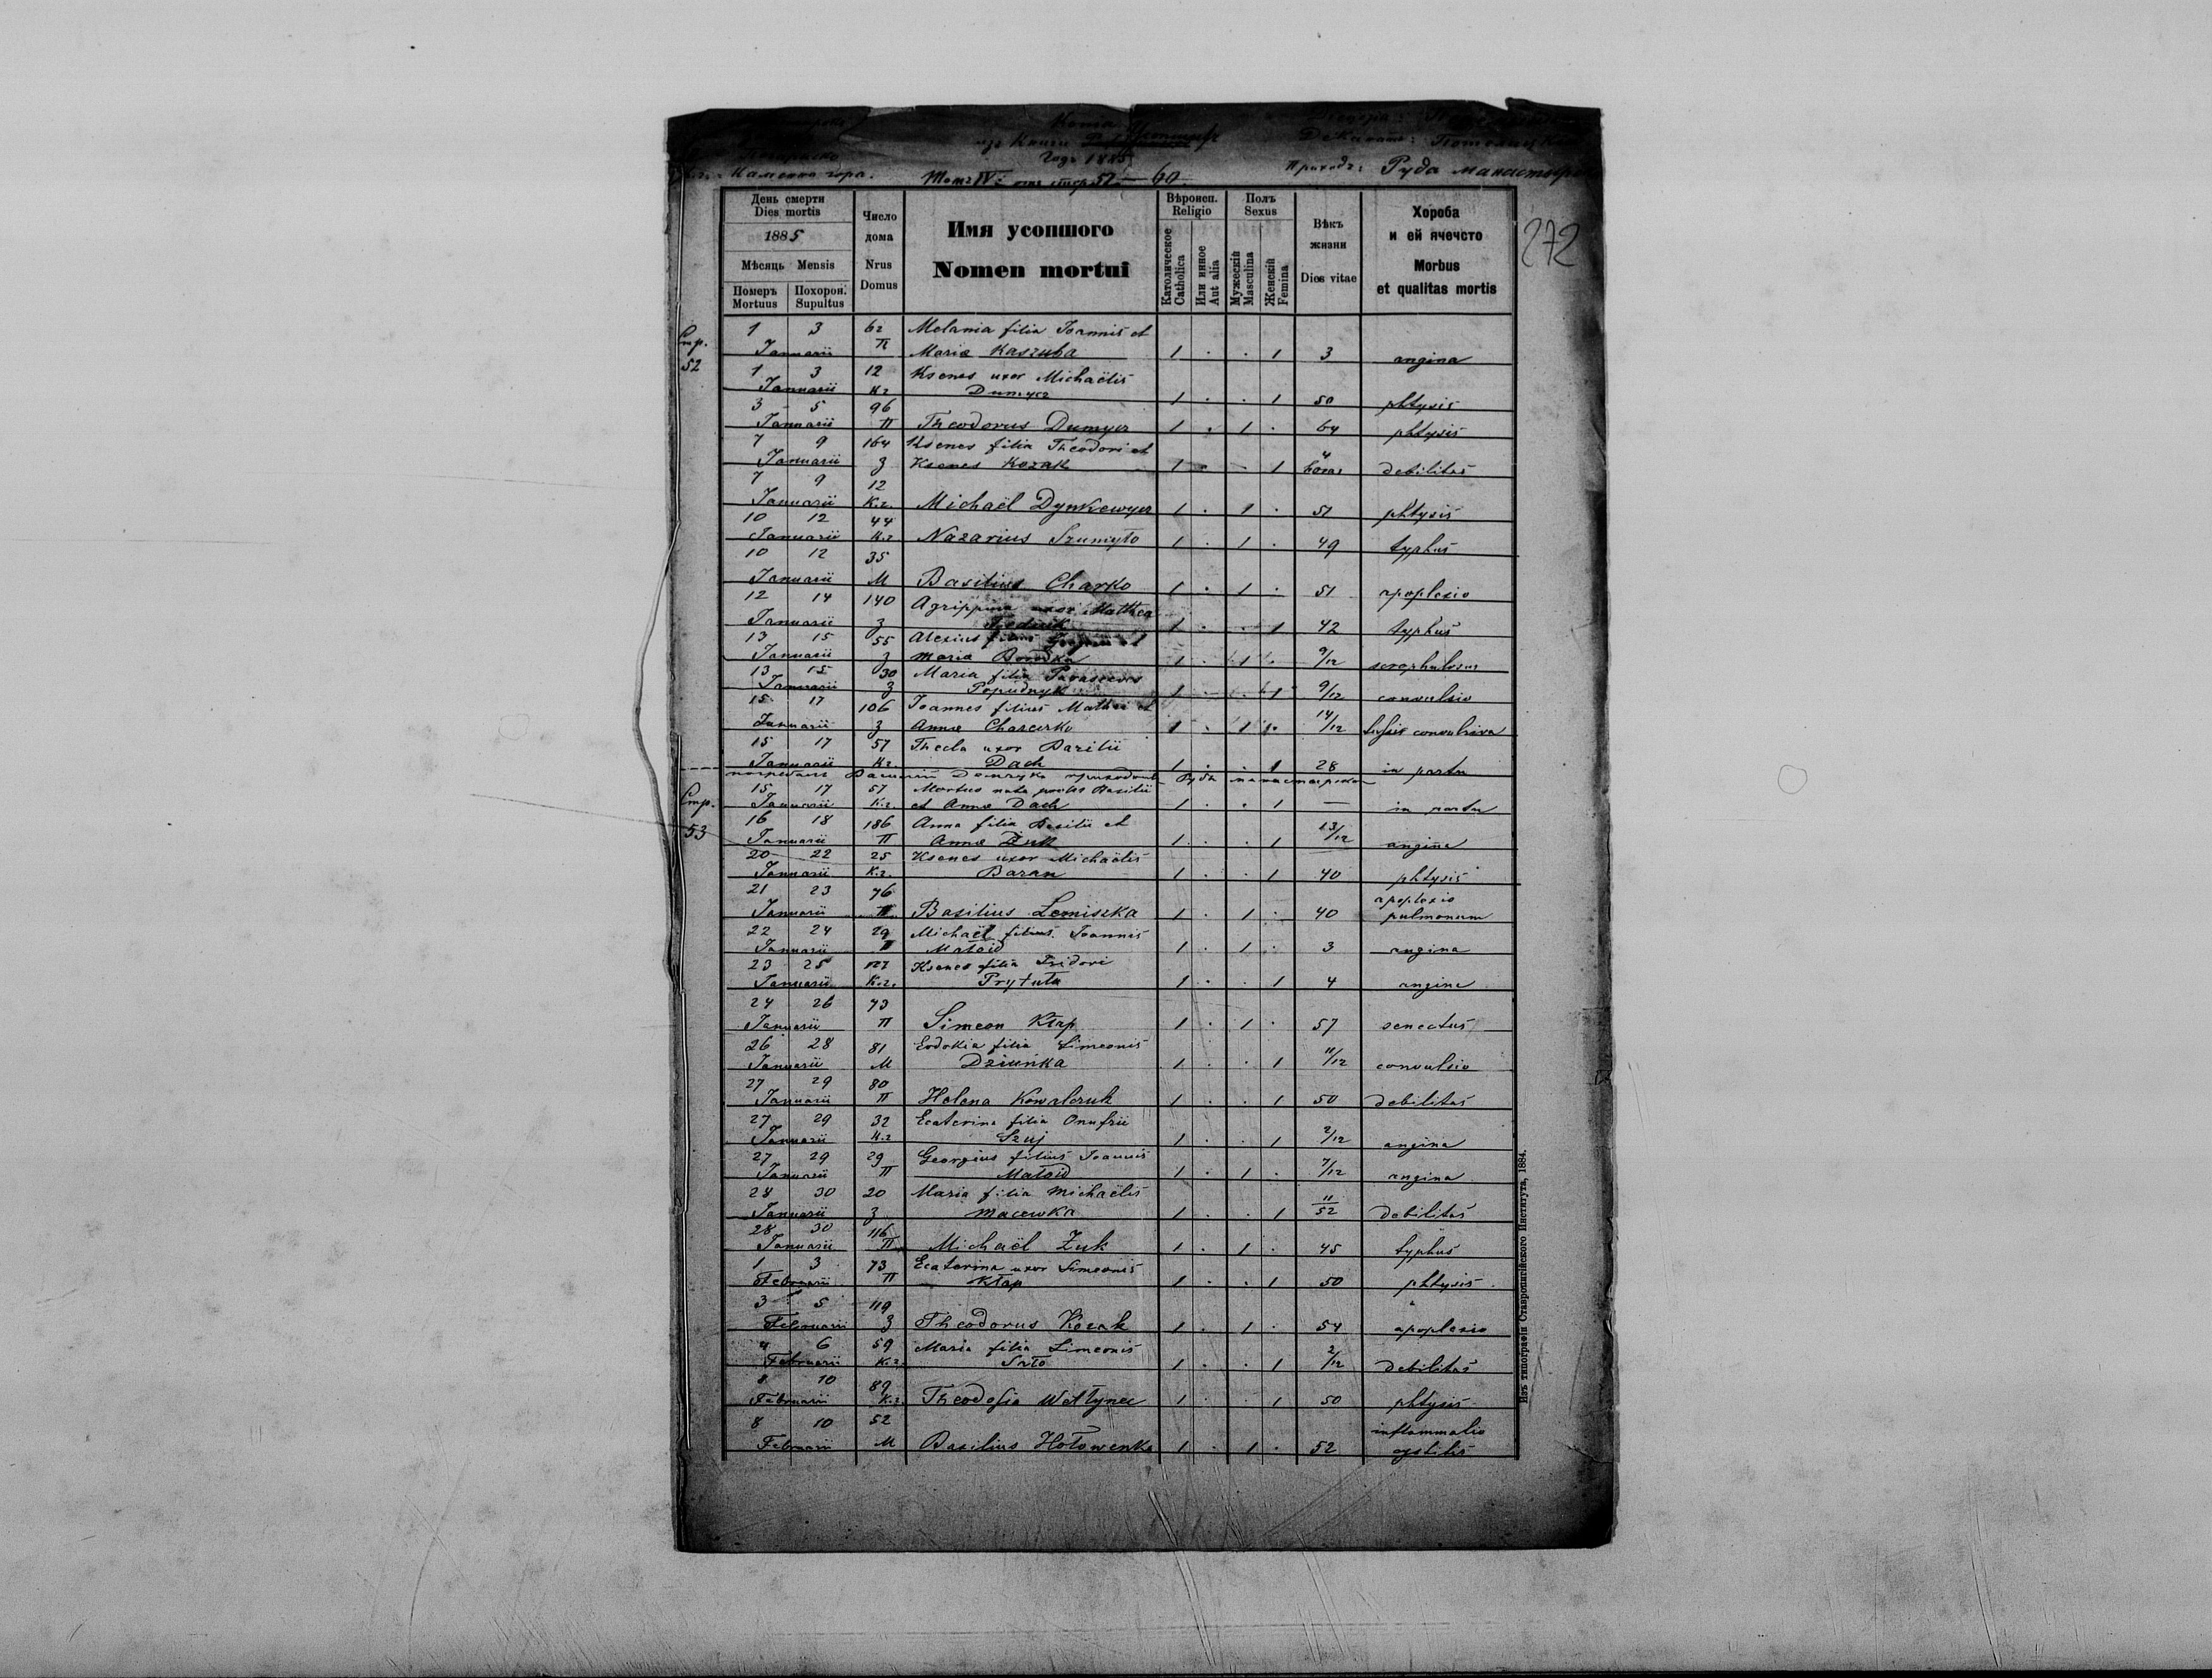 Копія
изъ Книги Усопшихъ
Годъ 1885
Деканатъ:
Каменна гора.
Томъ IV: отъ стор 51 — 60.
Приходъ: Руда манастырск
272
День смерти
Dies mortis
1885
Мѣсяць Mensis
Померъ Похорон.
Mortuus Supultus
Число
дома
Nrus
Domus
Имя усопшого
Nomen mortui
Вѣроисп.
Religio
Католическое
Catholica
Или инное
Aut alia
Полъ
Sexus
Мужескій
Masculina
Женскій
Femina
Вѣкъ
жизни
Dies vitae
Хороба
и ей ячечсто
Morbus
et qualitas mortis
Стр.
52
1 3 62 Melania filia Joannis et
Januarii П Mariæ Kaszuba 1 . . 1 3 angina
1 3 12 Ksenes uxor Michaëlis
Januarii К.г Dumycz 1 . . 1 50 phtysis
3 5 96
Januarii П Theodorus Dumycz 1 . 1 . 64 phtysis
7 9 164 Ksenes filia Theodori et 4
Januarii З Ksenes Kozak 1 . . 1 horas debilitas
7 9 12
Januarii К.г. Michaël Dynkewycz 1 . 1 . 51 phtysis
10 12 44
Januarii К.г Nazarius Szumyło 1 . 1 . 49 typhus
10 12 35
Januarii М Basilius Charko 1 . 1 . 51 apoplexio
12 14 140 Agrippina uxor Matthea
Januarii З 1 . . 1 42 typhus
13 15 55 Alexius filius et
Januarii З Maria 1 . 1 . 9/12
13 15 30 Maria filia Parascevis
Januarii З Popudnyk 1 . . 1 9/12 convulsio
15 17 106 Joannes filius Mathei et
Januarii З Annæ 1 . 1 . 14/12 tussis convulsiva
15 17 57 Thecla uxor Basilii
Januarii К.г. Dach 1 . . 1 28 in partu
погребалъ Василій приходникъ Руды манастырской
Стр.
53
15 17 57 Mortua nata proles Basilii
Januarii К.г. et Annæ Dach 1 . . 1 — in partu
16 18 186 Anna filia Basilii et
Januarii П Annæ Żuk 1 . . 1 13/12 angina
20 22 25 Ksenes uxor Michaëlis
Januarii К.г. Baran 1 . . 1 40 phtysis
21 23 76 apoplexio
Januarii П Basilius Lemiszka 1 . 1 . 40 pulmonum
22 24 29 Michaël filius Joannis
Januarii П Matoid 1 . 1 . 3 angina
23 25 Ksenes filia Isidori
Januarii К.г. Prytuła 1 . . 1 4 angina
24 26 73
Januarii П Simeon Kłap 1 . 1 . 57 senectus
26 28 81 Eudokia filia Simeonis
Januarii М Dziunka 1 . . 1 11/12 convulsio
27 29 80
Januarii П Helena Kowalczuk 1 . . 1 50 debilitas
27 29 32 Ecaterina filia Onufrii
Januarii К.г Szuj 1 . . 1 2/12 angina
27 29 29 Georgius filius Joannis
Januarii П Matoid 1 . 1 . 7/12 angina
28 30 20 Maria filia Michaëlis
Januarii З Macewka 1 . . 1 11/52 debilitas
28 30 116
Januarii П Michaël Żuk 1 . 1 . 45 typhus
1 3 73 Ecaterina uxor Simeonis
Februarii П Kłap 1 . . 1 50 phtysis
3 5 119
Februarii З Theodorus Kozak 1 . 1 . 54 apoplexio
4 6 59 Maria filia Simeonis
Februarii К.г. 1 . . 1 2/12 debilitas
8 10 89
Februarii К.г. Theodosia Wołtynec 1 . . 1 50 phtysis
8 10 52 inflammatio
Februarii М Basilius Hołowenko 1 . 1 . 52 cystitis
Изъ типографіи Ставропигійского Института, 1884.